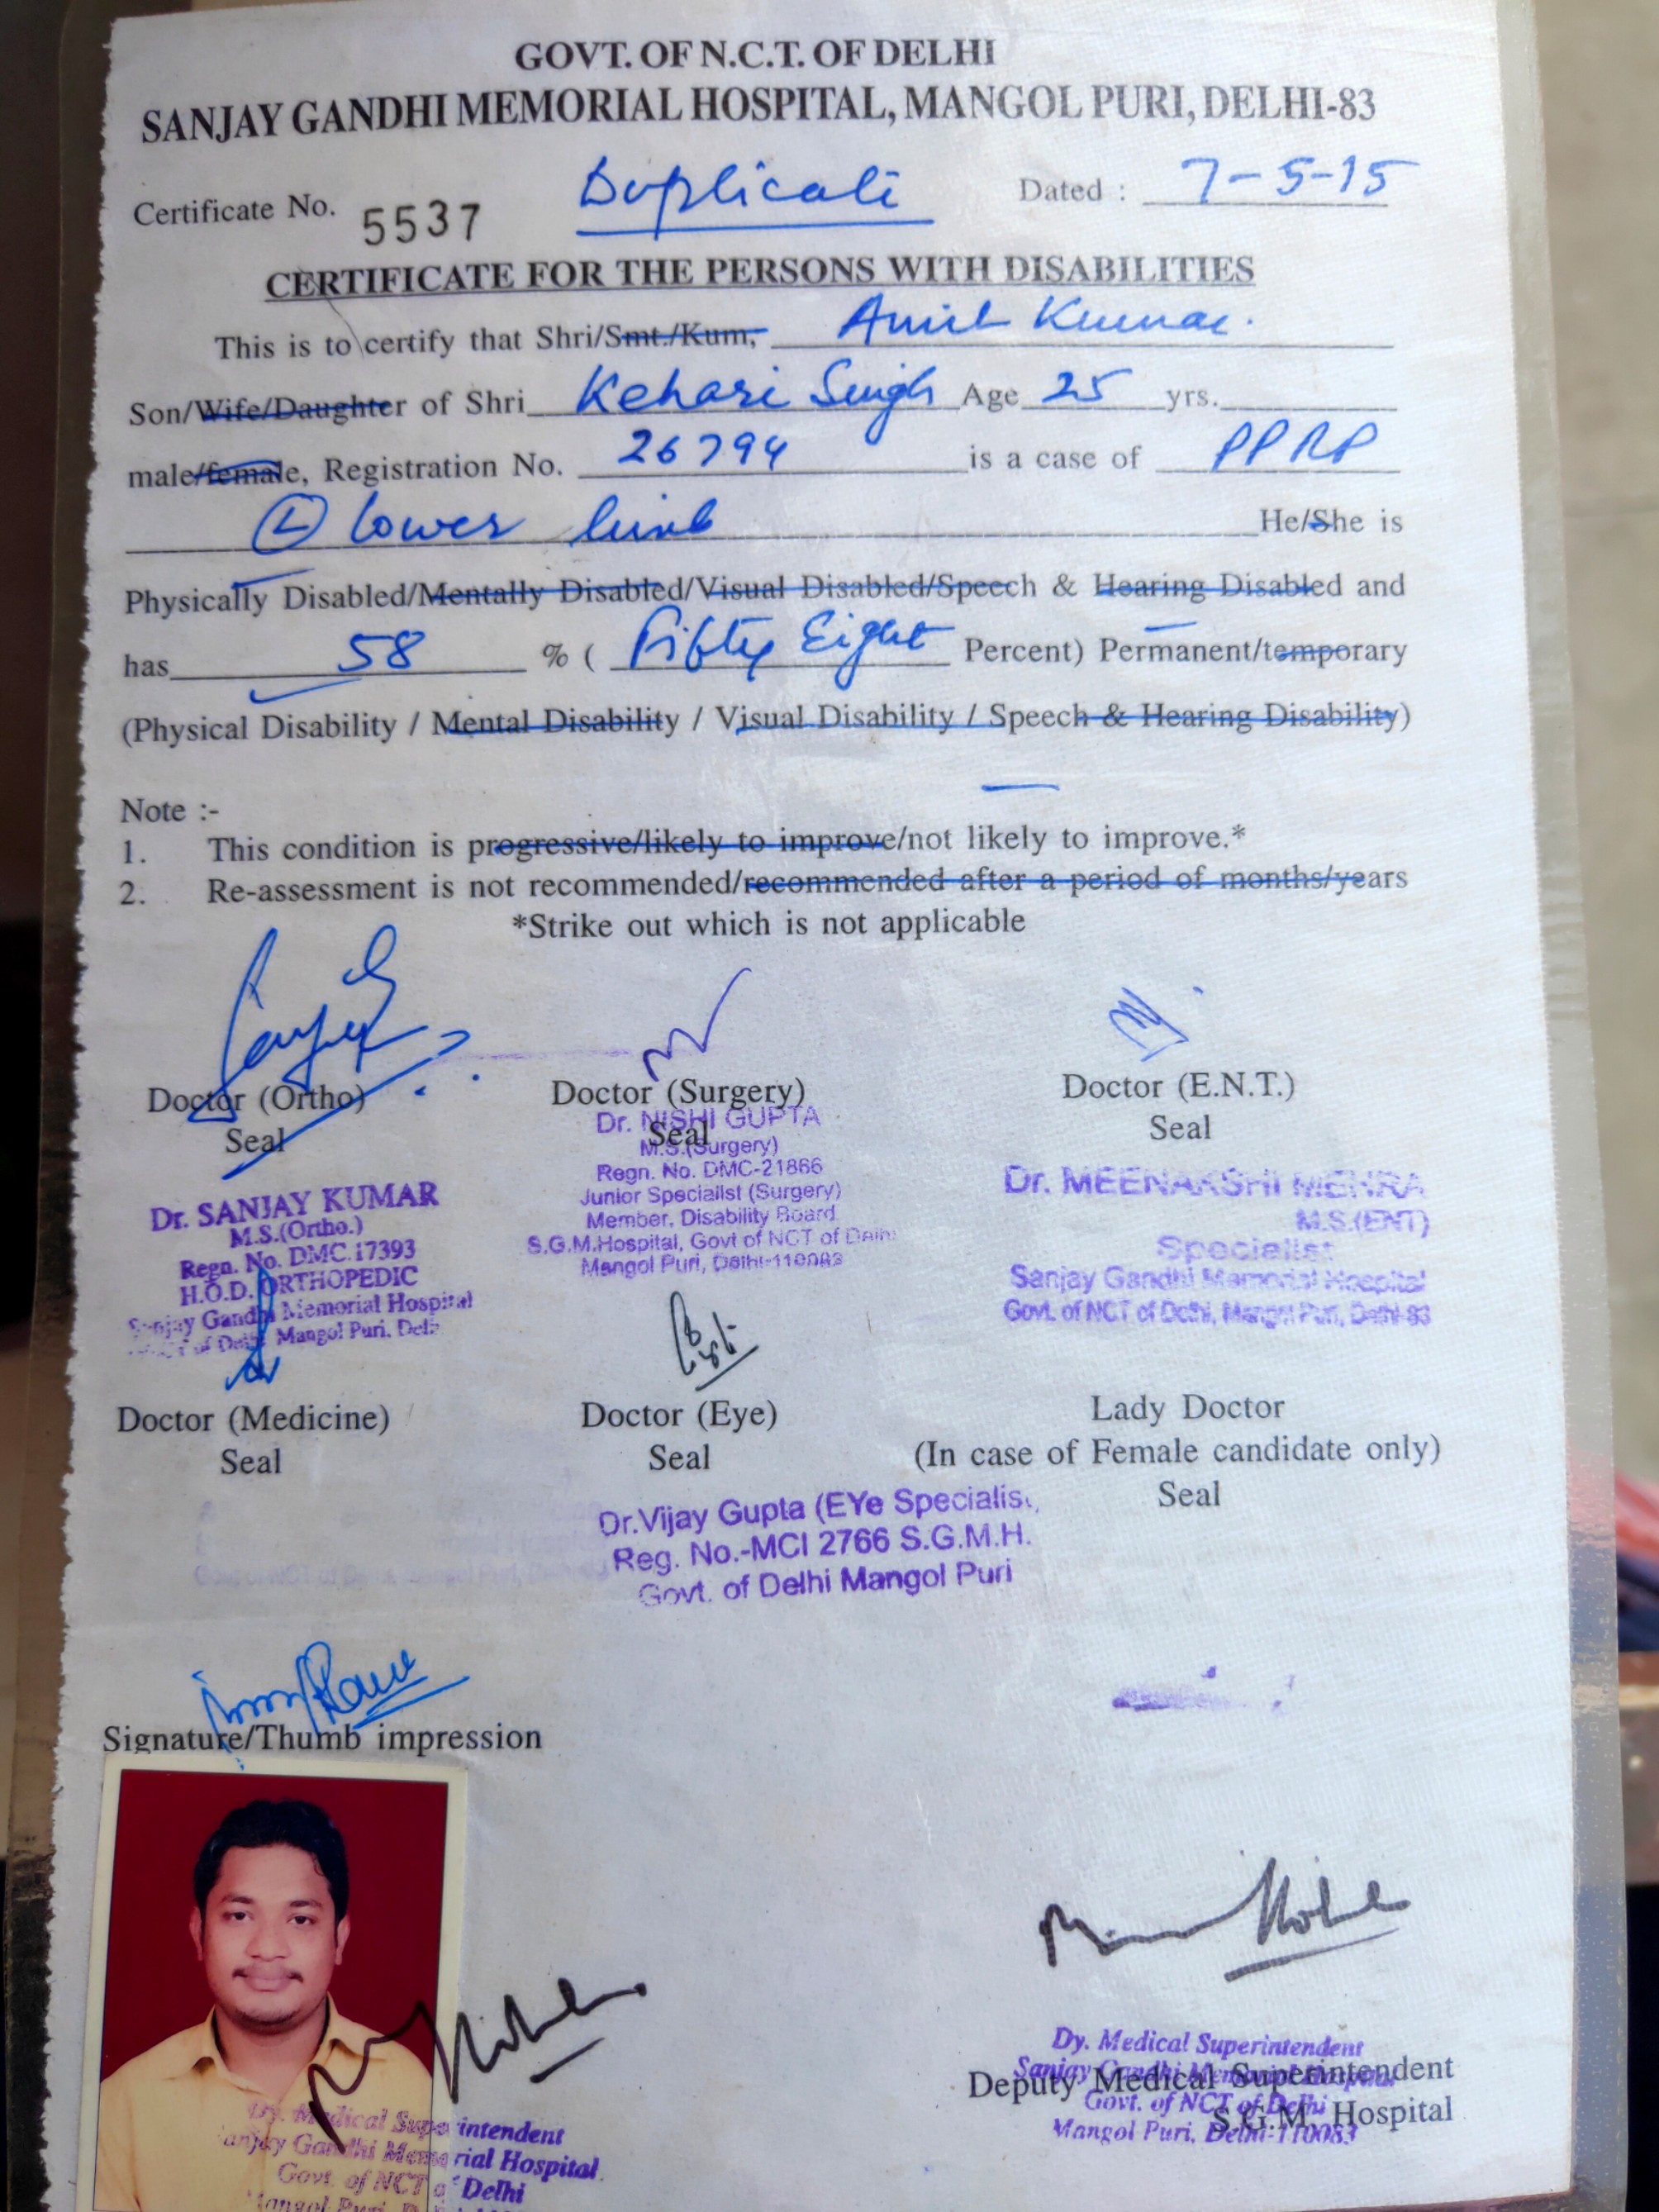 GOVT. OF N.C.T. OF DELHI
SANJAY GANDHI MEMORIAL HOSPITAL, MANGOL PURI, DELHI-83
Certificate No. 5537 Duplicate Dated : 7-5-15
CERTIFICATE FOR THE PERSONS WITH DISABILITIES
This is to certify that Shri/Smt./Kum, Amit Kumar.
Son/Wife/Daughter of Shri Kehari Singh Age 25 yrs.
male/female, Registration No. 26794 is a case of PPRP
(L) lower limb He/She is
Physically Disabled/Mentally Disabled/Visual Disabled/Speech & Hearing Disabled and
has 58 % ( Fifty Eight Percent) Permanent/temporary
(Physical Disability / Mental Disability / Visual Disability / Speech & Hearing Disability)
Note :-
1. This condition is progressive/likely to improve/not likely to improve.*
2. Re-assessment is not recommended/recommended after a period of months/years
*Strike out which is not applicable
Doctor (Ortho) Doctor (Surgery) Doctor (E.N.T.)
Seal Seal Seal
Dr. SANJAY KUMAR
M.S.(Ortho.)
Regn. No. DMC.17393
H.O.D. ORTHOPEDIC
Sanjay Gandhi Memorial Hospital
of Delhi Mangol Puri, Delhi
Dr. NISHI GUPTA
M.S.(Surgery)
Regn. No. DMC-21866
Junior Specialist (Surgery)
Member, Disability Board
S.G.M.Hospital, Govt of NCT of Delhi
Mangol Puri, Delhi-110083
Dr. MEENAKSHI MEHRA
M.S.(ENT)
Specialist
Sanjay Gandhi Memorial Hospital
Govt. of NCT of Delhi, Mangol Puri, Delhi-83
Doctor (Medicine) Doctor (Eye) Lady Doctor
Seal Seal (In case of Female candidate only)
Seal
Dr.Vijay Gupta (EYe Specialis
Reg. No.-MCI 2766 S.G.M.H.
Govt. of Delhi Mangol Puri
Signature/Thumb impression
Dy. Medical Superintendent
Sanjay Gandhi Memorial Hospital
Govt. of NCT of Delhi
Mangol Puri, Delhi-110083
Deputy Medical Superintendent
S.G.M. Hospital
Dy. Medical Superintendent
anjay Gandhi Memorial Hospital
Govt. of NCT of Delhi